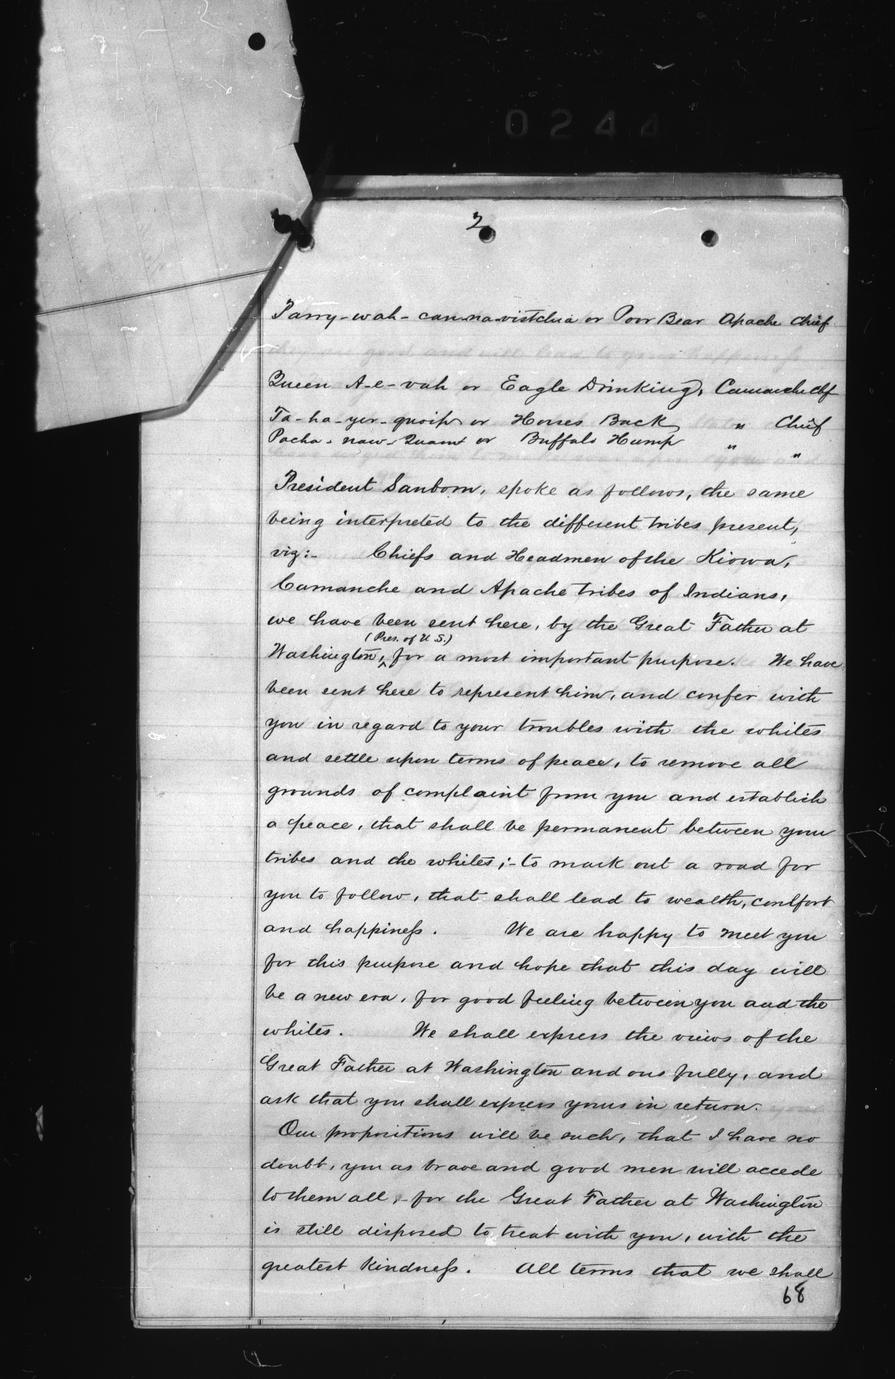 0244
2
Parry-wah-can-na-vistchia or Poor Bear Apache Chief
Queen A-e-vah or Eagle Drinking, Camanche Chf
Ta-ha-yer-quoip or Horses Back " Chief
Pocha-naw-Quaint or Buffalo Hump " "
President Sanborn, spoke as follows, the same
being interpreted to the different tribes present,
viz:- Chiefs and Headmen of the Kiowa,
Camanche and Apache tribes of Indians,
we have been sent here, by the Great Father at
(Pres. of U.S.)
Washington, ^ for a most important purpose. We have
been sent here to represent him, and confer with
you in regard to your troubles with the whites
and settle upon terms of peace, to remove all
grounds of complaint from you and establish
a peace, that shall be permanent between your
tribes and the whites;- to mark out a road for
you to follow, that shall lead to wealth, comfort
and happiness. We are happy to meet you
for this purpose and hope that this day will
be a new era, for good feeling between you and the
whites. We shall express the views of the
Great Father at Washington and ous fully, and
ask that you shall express yours in return.
Our propositions will be such, that I have no
doubt, you as brave and good men will accede
to them all,- for the Great Father at Washington
is still disposed to treat with you, with the
greatest kindness. All terms that we shall
68